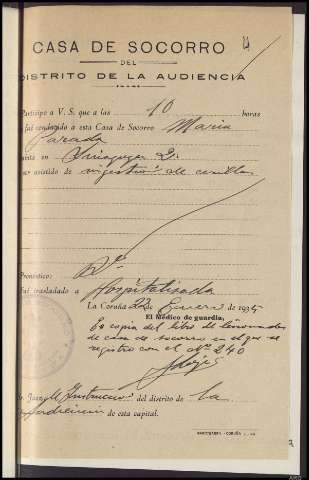 4
CASA DE SOCORRO
DEL
DISTRITO DE LA AUDIENCIA
Participo a V. S. que a las 10 horas
fué conducido a esta Casa de Socorro Maria
Parada
en Sinagoga 2.
asistido de ingestión de cerillas
Pronóstico: Rdo
Fué trasladado a Hospitalizada
La Coruña 22 de Enero de 1935
El Médico de guardia,
Es copia del libro de
de casa de socorro en el que se
registro con el nº 240
Sr. Juez de Instrucción del distrito de la
Audiencia de esta capital.